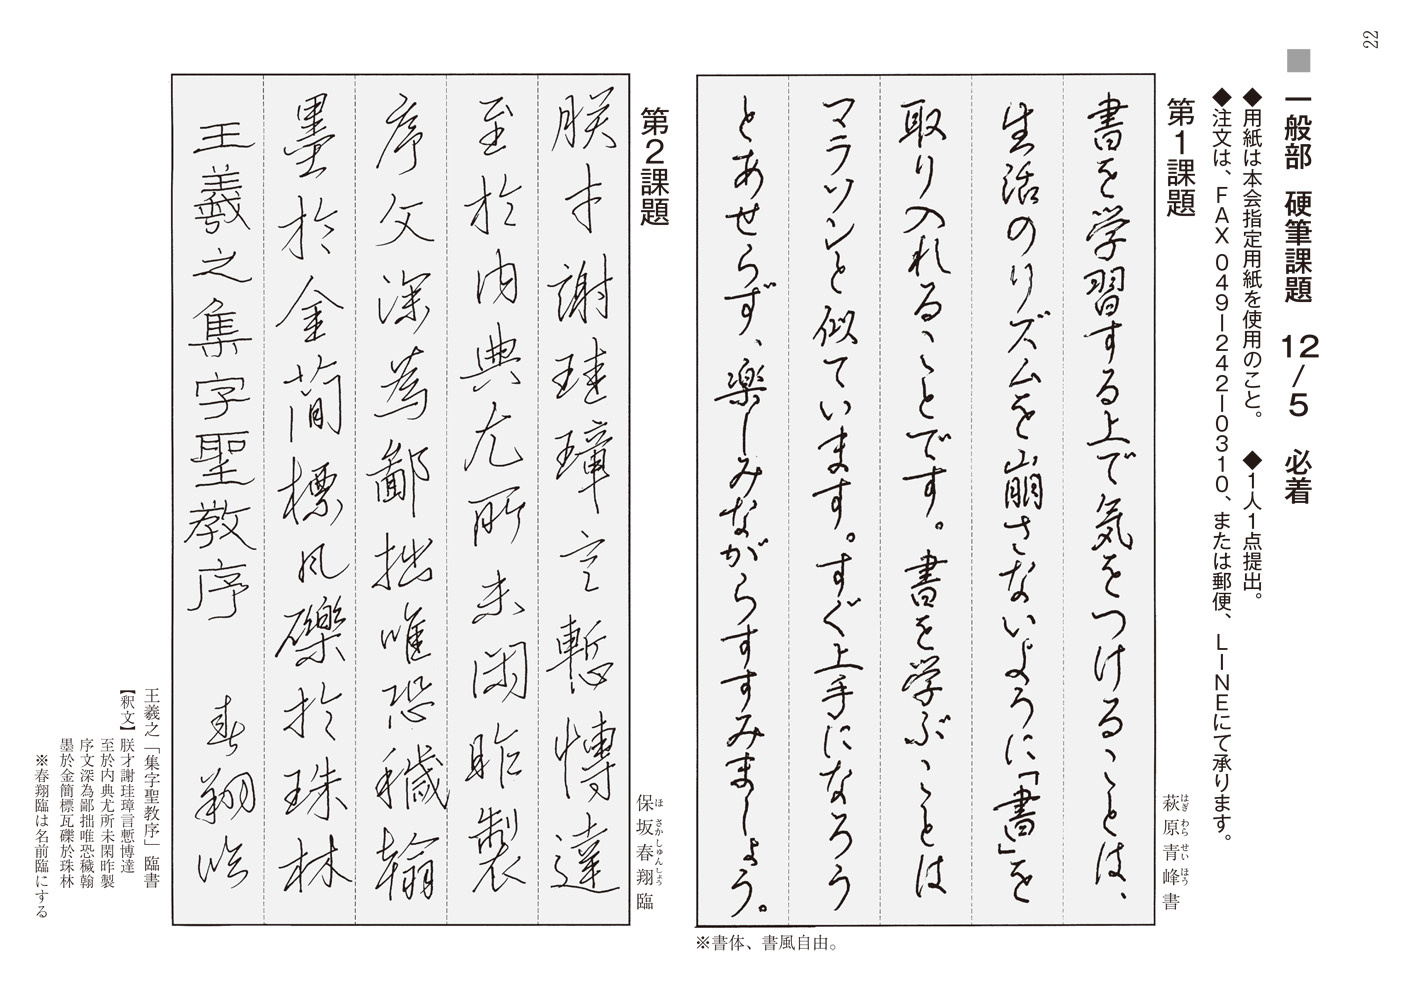 22
■ 一般部 硬筆課題 12/5 必着
◆用紙は本会指定用紙を使用のこと。 ◆1人1点提出。
◆注文は、FAX 049-242-0310、または郵便、LINEにて承ります。
第1課題
萩原青峰書
はぎわらせいほう
書を学習する上で気をつけることは、
生活のリズムを崩さないように「書」を
取り入れることです。書を学ぶことは
マラソンと似ています。すぐ上手になろう
とあせらず、楽しみながらすすみましょう。
※書体、書風自由。
第2課題
保坂春翔臨
ほさかしゅんしょう
朕才謝珪璋言慙博達
至於内典尤所未閑昨製
序文深為鄙拙唯恐穢翰
墨於金簡標瓦礫於珠林
王羲之集字聖教序 春翔臨
王羲之「集字聖教序」臨書
【釈文】朕才謝珪璋言慙博達
至於内典尤所未閑昨製
序文深為鄙拙唯恐穢翰
墨於金簡標瓦礫於珠林
※春翔臨は名前臨にする